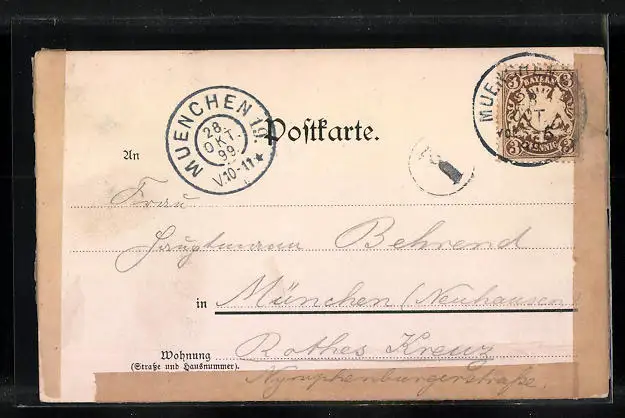 MUENCHEN 19.
28.
OKT.
99.
V.10-11★
Postkarte.
MUENCHEN
3 BAYERN 3
3 PFENNIG 3
An
Frau
Hauptmann Behrend
in München (Neuhausen)
Wohnung Rothes Kreuz
(Straße und Hausnummer).
Nymphenburgerstraße.